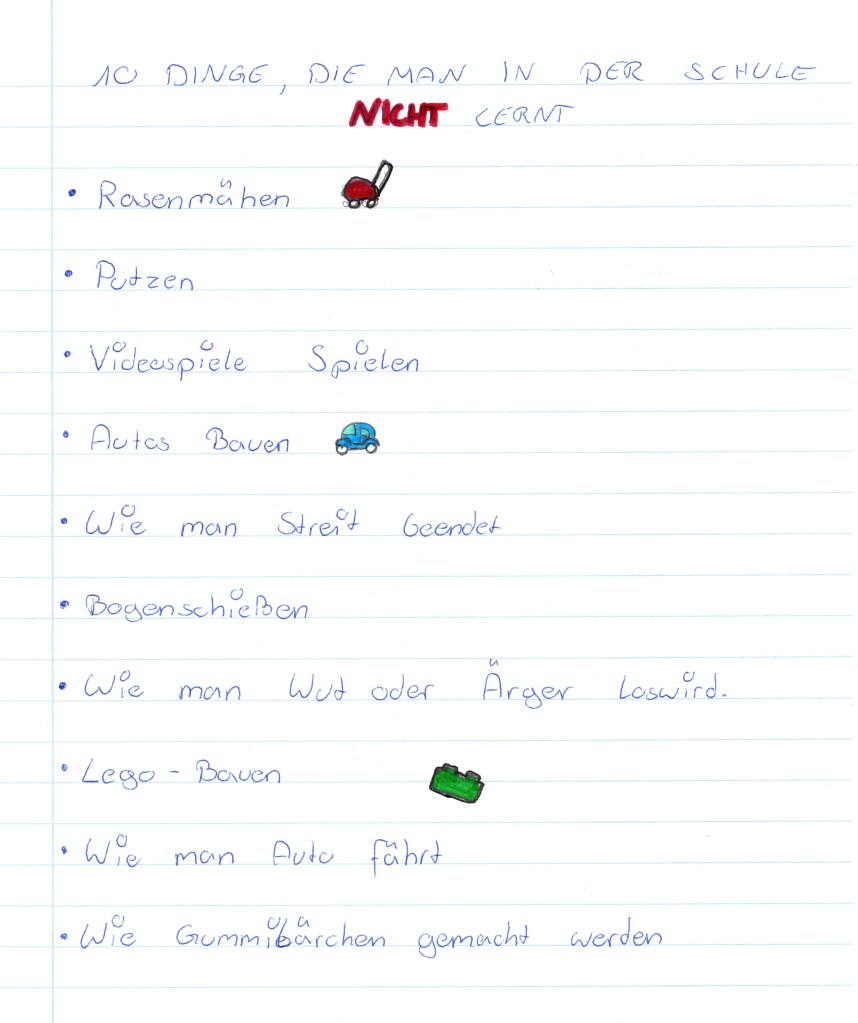 10 DINGE, DIE MAN IN DER SCHULE
NICHT LERNT
• Rasenmähen
• Putzen
• Videospiele Spielen
• Autos Bauen
• Wie man Streit beendet
• Bogenschießen
• Wie man Wut oder Ärger Loswird.
• Lego - Bauen
• Wie man Auto fährt
• Wie Gummibärchen gemacht werden